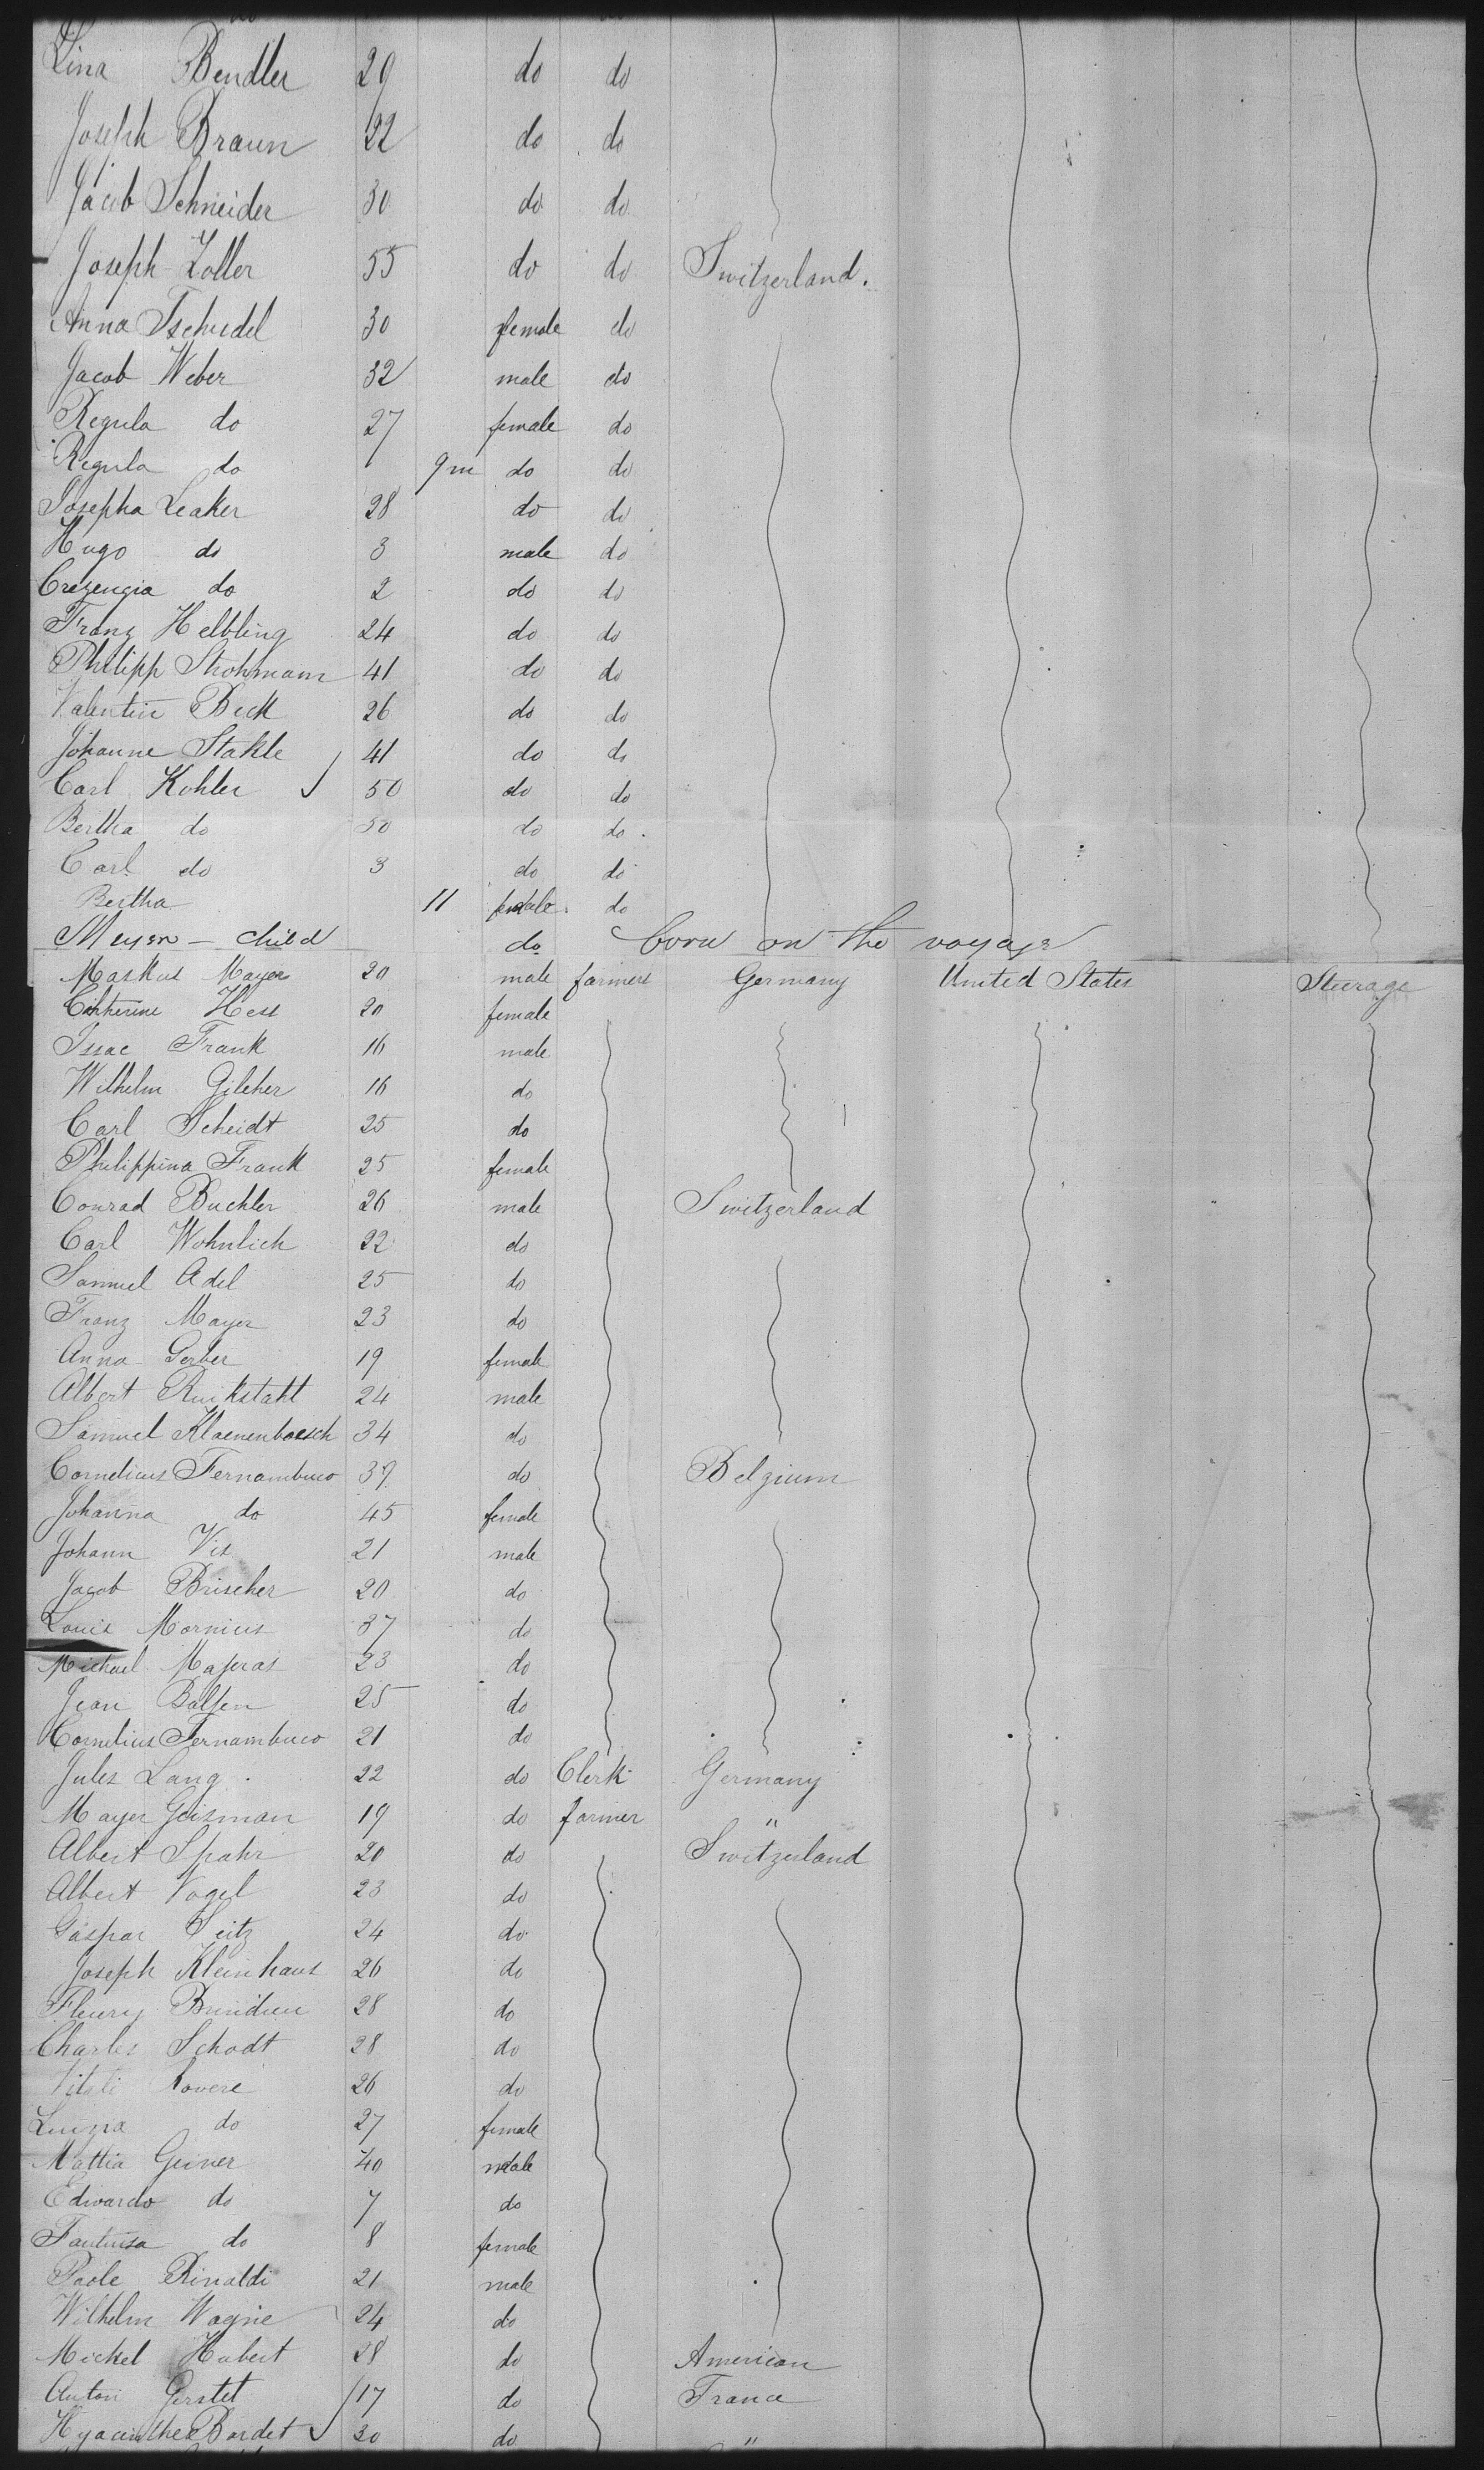 Lina Bendler 29 do do
Joseph Braun 22 do do
Jacob Schneider 30 do do
Joseph Zoller 55 do do Switzerland.
Anna Tschudel 30 female do
Jacob Weber 32 male do
Regula do 27 female do
Regula do 9m do do
Josepha Leaker 28 do do
Hugo do 3 male do
Crezengia do 2 do do
Franz Helbling 24 do do
Philipp Strohmann 41 do do
Valentin Beck 26 do do
Johanne Stakle 41 do do
Carl Kohler 50 do do
Bertha do 50 do do
Carl do 3 do do
Bertha 11 female do
Meyer - child do born on the voyage
Markus Mayer 20 male farmers Germany United States Steerage
Catherine Hess 20 female
Issac Frank 16 male
Wilhelm Gilcher 16 do
Carl Scheidt 25 do
Philippina Frank 25 female
Conrad Buchler 26 male Switzerland
Carl Wohnlich 22 do
Samuel Adel 25 do
Franz Mayer 23 do
Anna Gerber 19 female
Albert Ruikstahl 24 male
Samuel Klaenenboesch 34 do
Cornelius Fernambuco 39 do Belgium
Johanna do 45 female
Johann Vis 21 male
Jacob Brischer 20 do
Louis Mornius 37 do
Michael Majeras 23 do
Jean Balsen 25 do
Cornelius Fernambuco 21 do
Jules Lang 22 do Clerk Germany
Mayer Geisman 19 do farmer "
Albert Spahr 20 do Switzerland
Albert Vogel 23 do
Gaspar Seitz 24 do
Joseph Kleinhaus 26 do
Fleury 28 do
Charles Schodt 28 do
Vitali Rovere 26 do
Luizia do 27 female
Mattia Geiner 40 male
Edwardo do 7 do
do 8 female
Paole Rinaldi 21 male
Wilhelm Wagne 24 do
Mickel Hubert 28 do American
Anton Gerstel 17 do France
Hyacinthe Bardet 30 do "